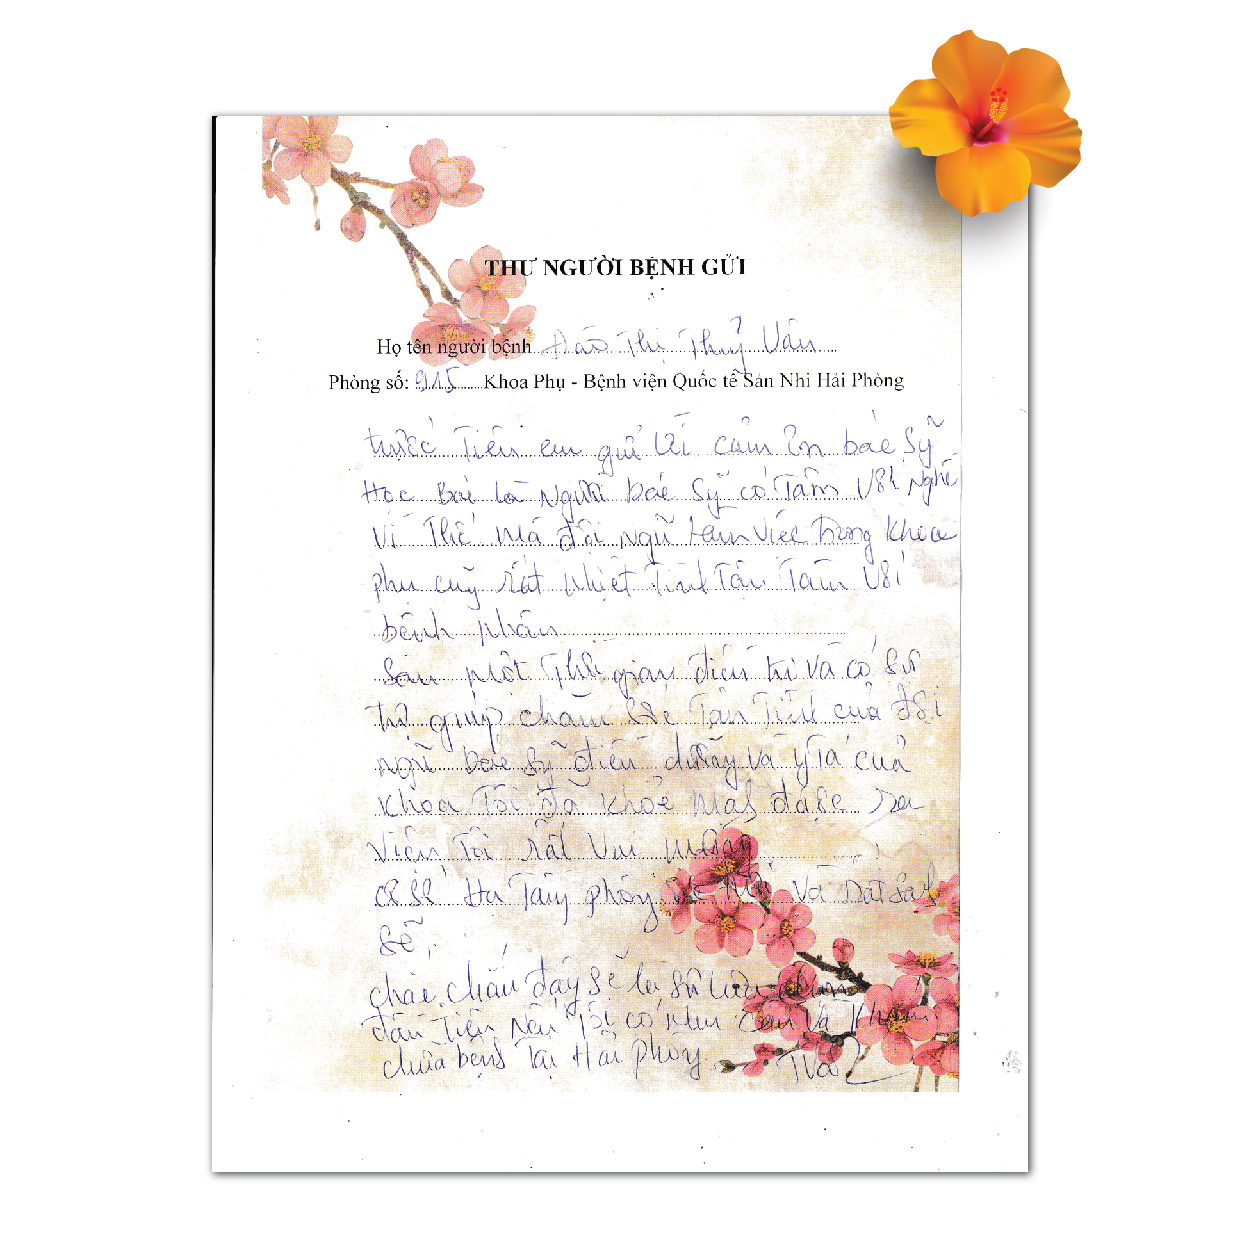 THƯ NGƯỜI BỆNH GỬI
Họ tên người bệnh Đào Thị Thuỷ Vân
Phòng số: 915 Khoa Phụ - Bệnh viện Quốc tế Sản Nhi Hải Phòng
trước Tiên em gửi lời cảm ơn bác Sỹ
Học Bài là người bác Sỹ có Tâm Với Nghề
Vì Thế mà đội ngũ làm việc trong khoa
phụ cũng rất nhiệt Tình Tận Tâm Với
bệnh nhân
Sau một Thời gian điều trị và có sự
trợ giúp chăm sóc Tận Tình của đội
ngũ bác sỹ điều dưỡng và y Tá của
khoa Tôi đã khoẻ mạnh được ra
viện Tôi rất Vui mừng
cơ sở Hạ Tầng phòng và Rất sạch
sẽ,
chắc chắn đây sẽ là sự lựa chọn
đầu Tiên nếu Tôi có nhu cầu Và khám
chữa bệnh Tại Hải phòng.